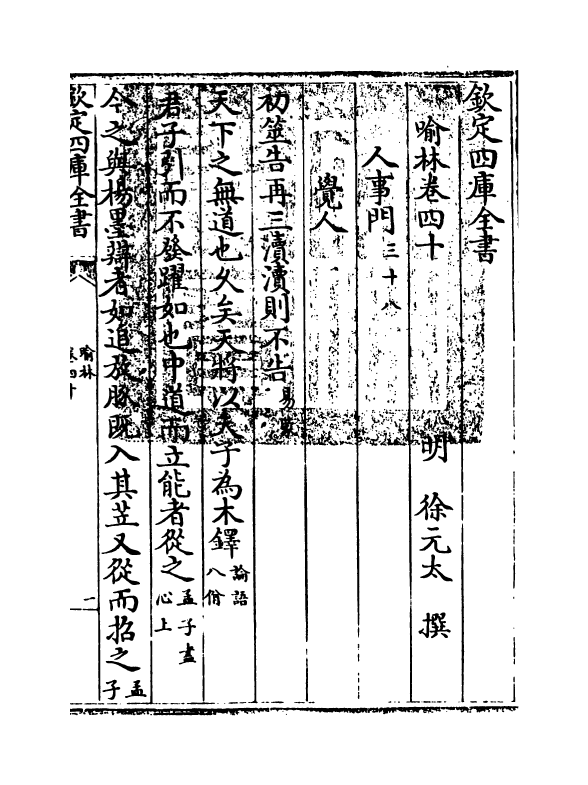 欽定四庫全書
喻林卷四十
明 徐元太 撰
人事門三十八
覺人
初筮告再三瀆瀆則不告易蒙
天下之無道也久矣天將以夫子為木鐸論語八佾
君子引而不發躍如也中道而立能者從之孟子盡心上
今之與楊墨辯者如追放豚既入其苙又從而招之孟子
欽定四庫全書
喻林
卷四十
一